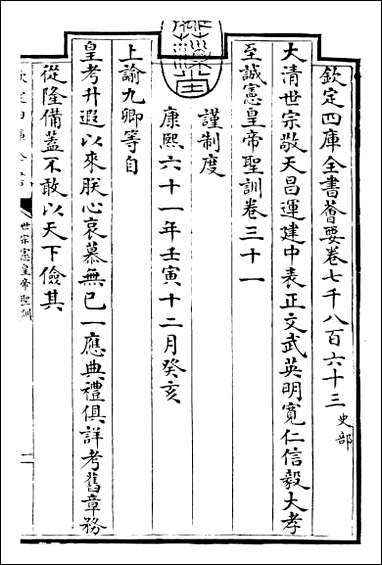 欽定四庫全書薈要卷七千八百六十三 史部
大清世宗敬天昌運建中表正文武英明寬仁信毅大孝
至誠憲皇帝聖訓卷三十一
謹制度
康熙六十一年壬寅十二月癸亥
上諭九卿等自
皇考升遐以來朕心哀慕無已一應典禮俱詳考舊章務
從隆備蓋不敢以天下儉其
世宗憲皇帝聖訓